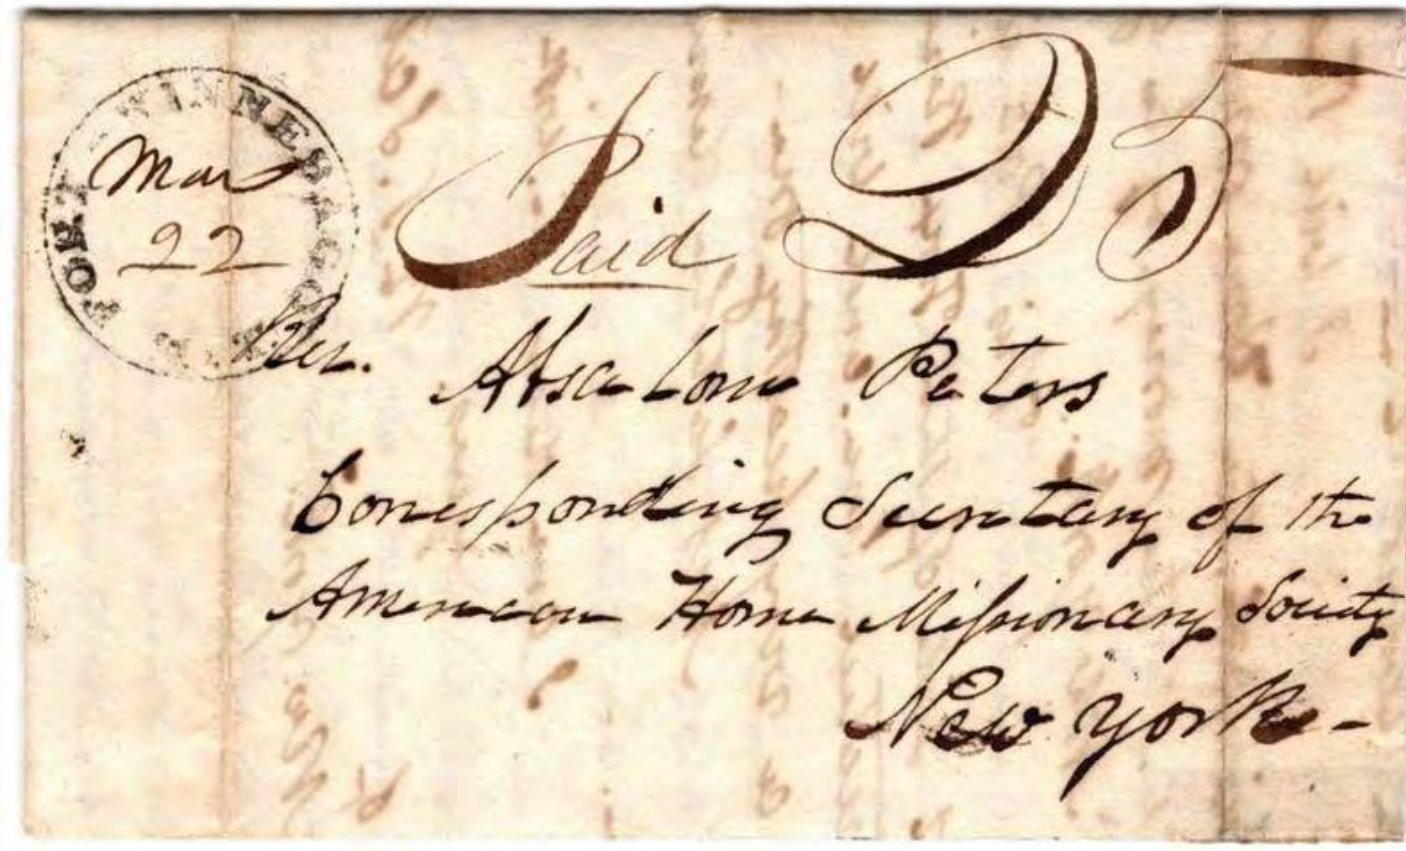 FORT WINNEBAGO
Mar
22
Paid 25
Rev. Absalom Peters
Corresponding Secretary of the
American Home Missionary Society
New York -